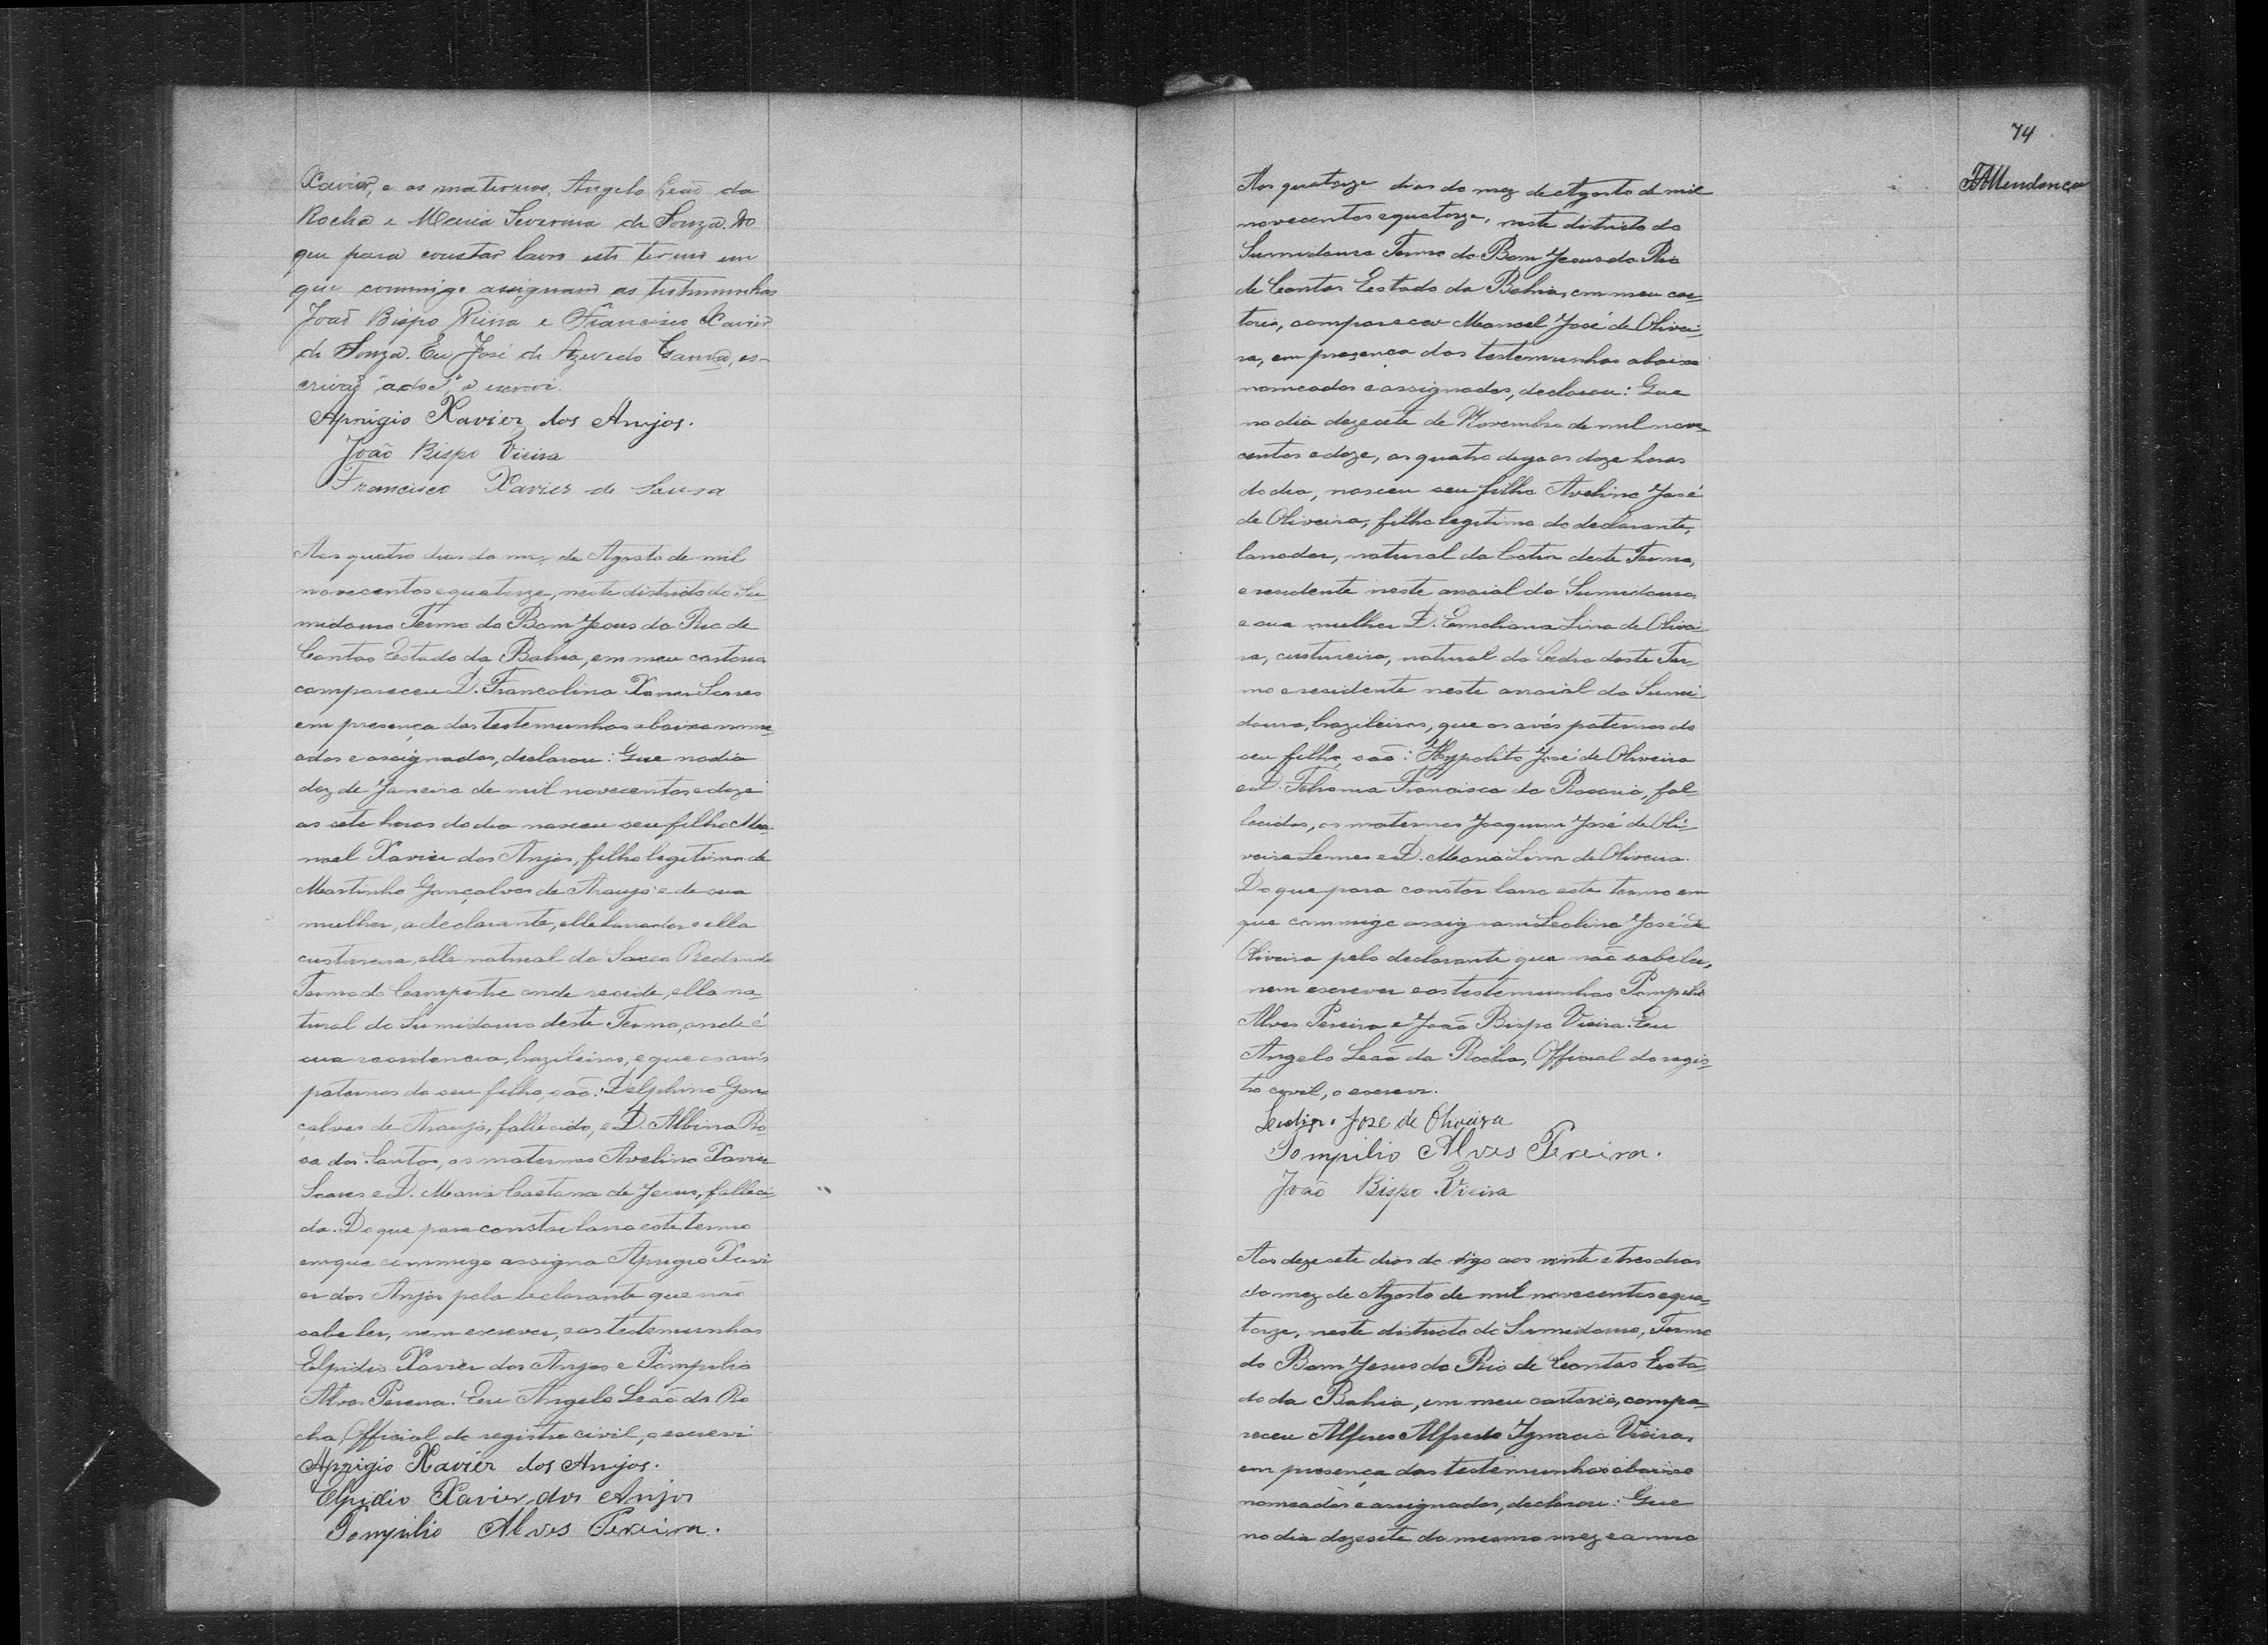 Xavier, e os maternos, Angelo Leaõ da
Rocha e Maria Severina de Souza. Do
que para constar lavro este termo em
que commigo assignam as testemunhas
João Bispo Vieira e Francisco Xavier
de Souza. Eu José de Azevedo Gama, es-
crivaõ "ad oc", o escrevi.
Aprigio Xavier dos Anjos.
João Bispo Vieira
Francisco Xavier de Sousa
Aos quatro dias do mez de Agosto de mil
novecentos e quatorze, neste districto do Su-
midouro Termo do Bom Jesus do Rio de
Contas Estado da Bahia, em meu cartorio
compareceu D. Francolina Xavier Soares
em presença das testemunhas abaixo nome-
adas e assignadas, declarou: Que no dia
dez de Janeiro de mil novecentos e doze
as sete horas do dia nasceu seu filho Ma-
noel Xavier dos Anjos, filho legitimo de
Martinho Gonçalves de Araujo e de sua
mulher, a declarante, elle lavrador e ella
custureira, elle natural do Sacco Redondo
Termo do Campestre onde reside, ella na-
tural do Sumidouro deste Termo, onde é
sua residencia, brazileiros, e que os avós
paternos do seu filho, saõ: Delphino Gon-
çalves de Araujo, fallecido, e D. Albina Ro-
sa dos Santos, os maternos Avelino Xavier
Soares e D. Maria Caetana de Jesus, falleci-
da. Do que para constar lavro este termo
em que commigo assigna Aprigio Xavi-
er dos Anjos pela declarante que não
sabe ler, nem escrever, e as testemunhas
Elpidio Xavier dos Anjos e Pompilio
Alves Pereira. Eu Angelo Leaõ da Ro-
cha, Official do registro civil, o escrevi
Aprigio Xavier dos Anjos.
Elpidio Xavier dos Anjos
Pompilio Alves Pereira.
74
Mendonça
Aos quatorze dias do mez de Agosto de mil
novecentos e quatorze, neste districto do
Sumidouro Termo do Bom Jesus do Rio
de Contas Estado da Bahia, em meu car-
torio, compareceu Manoel José de Olivei-
ra, em presença das testemunhas abaixo
nomeadas e assignadas, declarou: Que
no dia dezesete de Novembro de mil nove-
centos e doze, as quatro digo as doze horas
do dia, nasceu seu filho Avelino José
de Oliveira, filho legitimo do declarante,
lavrador, natural da deste Termo,
e residente neste arraial do Sumidouro
e sua mulher D. Emiliana Lina de Olivei-
ra, custureira, natural do Cedro deste Ter-
mo e residente neste arraial do Sumi-
douro, brazileiros, que os avós paternos do
seu filho, saõ: Hyppolito José de Oliveira
e D. Francisca do Rosario, fal-
lecidos, os maternos Joaquim José de Oli-
veira Lemes e D. Maria Lina de Oliveira.
Do que para constar lavro este termo em
que commigo assignam Leolino José de
Oliveira pelo declarante que naõ sabe ler,
nem escrever e as testemunhas Pompilio
Alves Pereira e Joaõ Bispo Vieira. Eu
Angelo Leaõ da Rocha, Official do regis-
tro civil, o escrevi.
José de Oliveira
Pompilio Alves Pereira.
João Bispo Vieira
Aos dezesete dias do digo aos vinte e tres dias
do mez de Agosto de mil novecentos e qua-
torze, neste districto do Sumidouro, Termo
do Bom Jesus do Rio de Contas Esta-
do da Bahia, em meu cartorio, compa-
receu Alferes Alfredo Ignacio Vieira,
em presença das testemunhas abaixo
nomeadas e assignadas, declarou: Que
no dia dezesete do mesmo mez e anno